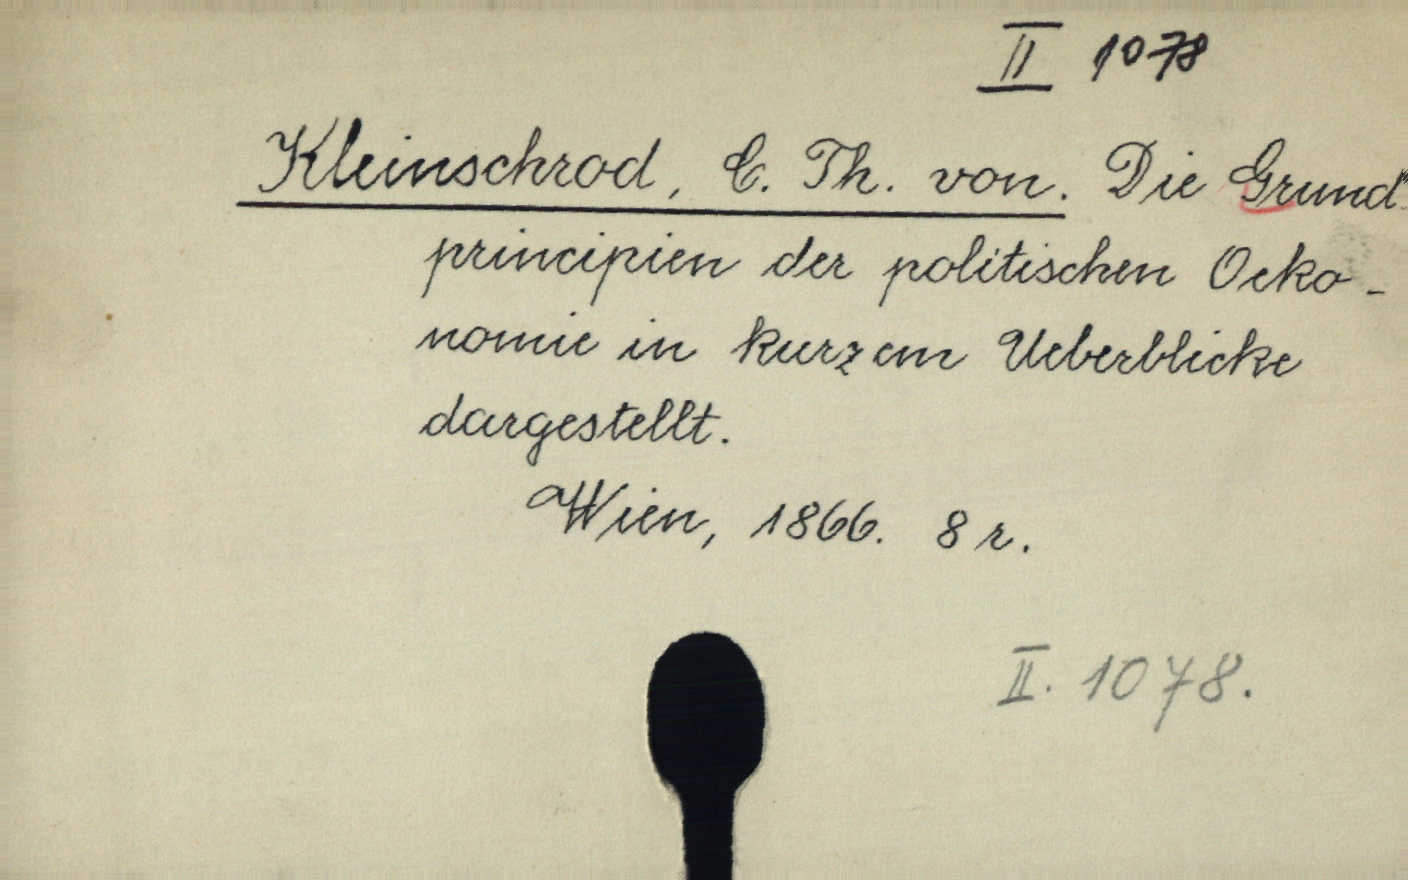 II 1078
Kleinschrod, C. Th. von. Die Grund-
principien der politischen Oeko-
nomie in kurzem Ueberblicke
dargestellt.
Wien, 1866. 8 r.
II. 1078.